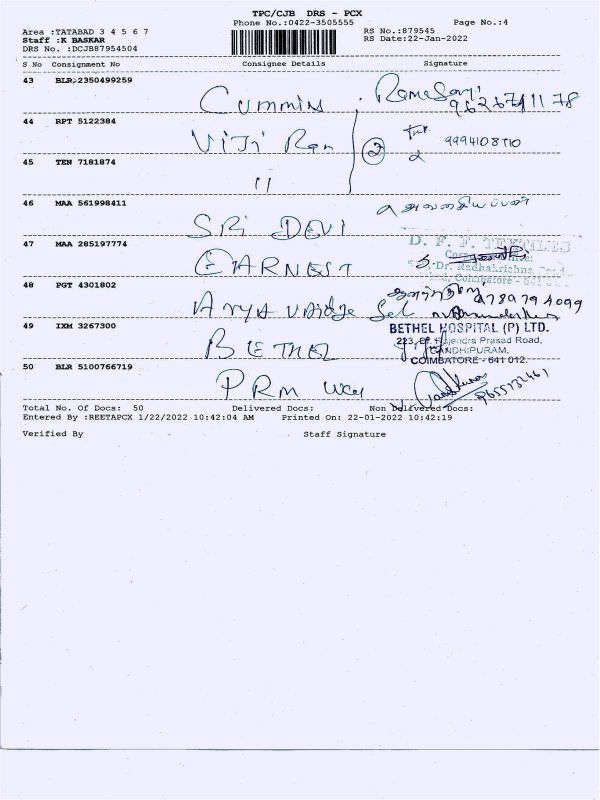 TPC/CJB DRS - PCX
Phone No.:0422-3505555 Page No.:4
Area :TATABAD 3 4 5 6 7 RS No.:879545
Staff :K BASKAR RS Date:22-Jan-2022
DRS No. :DCJB87954504
S No Consignment No Consignee Details Signature
43 BLR 2350499259
Cummins
44 RPT 5122384
Viji Ran 2 9994108710
45 TEN 7181874
11
46 MAA 561998411
SRi DEVI
47 MAA 285197774 D. F. F. TEXTILES
EARNEST Dr. Radhakrishna Road
Coimbatore - 641
48 PGT 4301802
Arya 9789794099
49 IXM 3267300 BETHEL HOSPITAL (P) LTD.
BETHEL 223, Dr. Rajendra Prasad Road,
GANDHIPURAM,
COIMBATORE - 641 012.
50 BLR 5100766719
PRM
Total No. Of Docs: 50 Delivered Docs: Non Delivered Docs:
Entered By :REETAPCX 1/22/2022 10:42:04 AM Printed On: 22-01-2022 10:42:19
Verified By Staff Signature